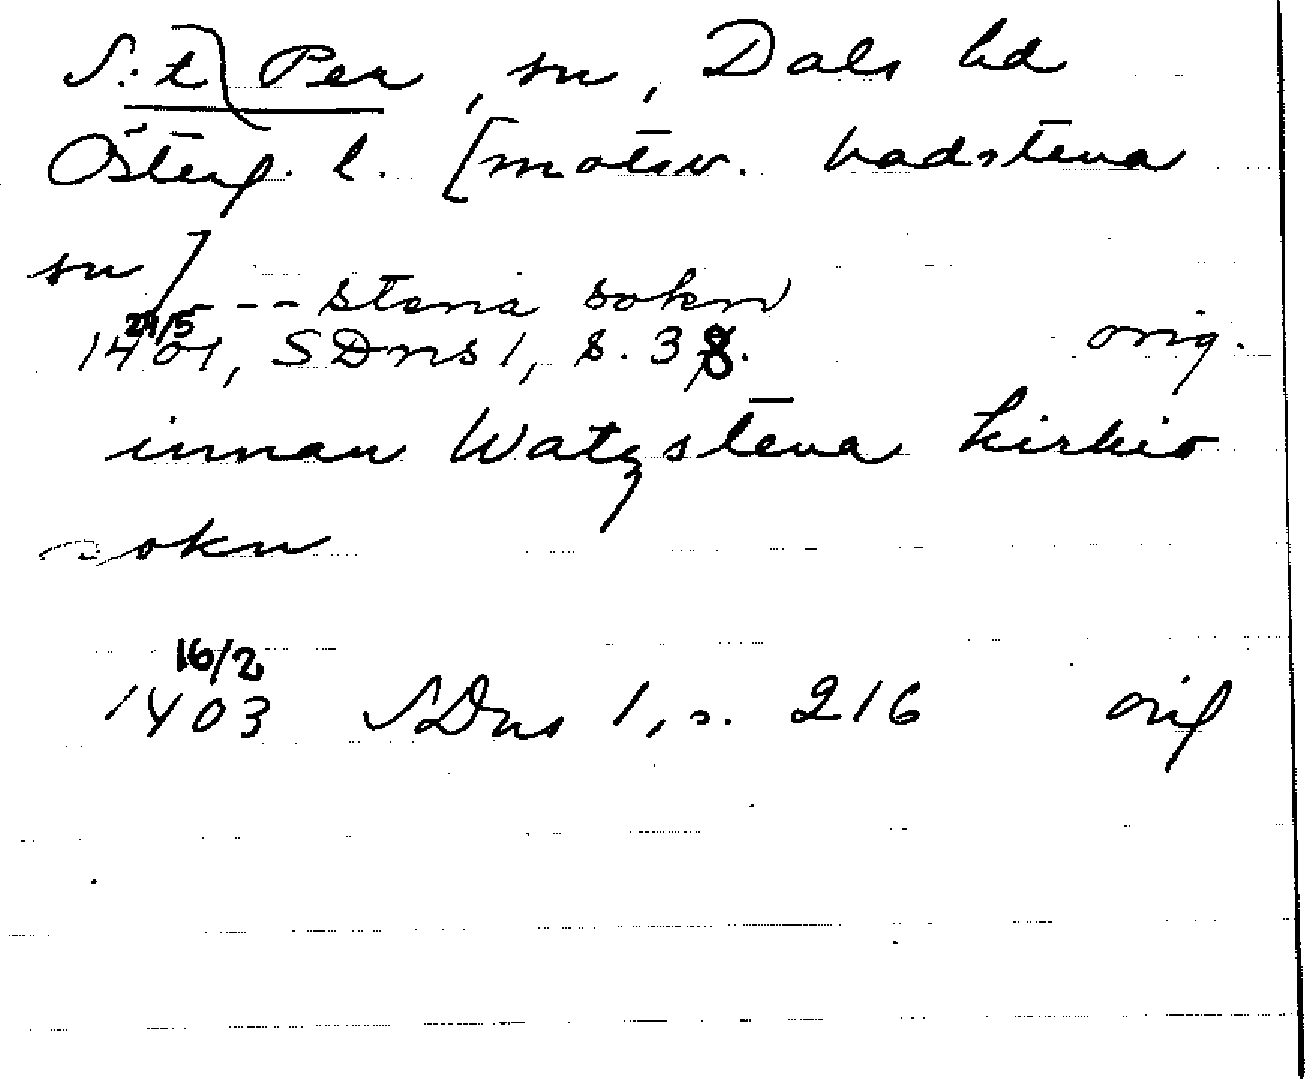 S:t Per, sn, Dals hd
Österg. l. [motsv. Vadstena
sn] --- stena sokn
24/5
1401, SDns 1, s. 38. orig.
innan Watzstena kirkio
sokn
16/2
1403 SDns 1, s. 216 orig